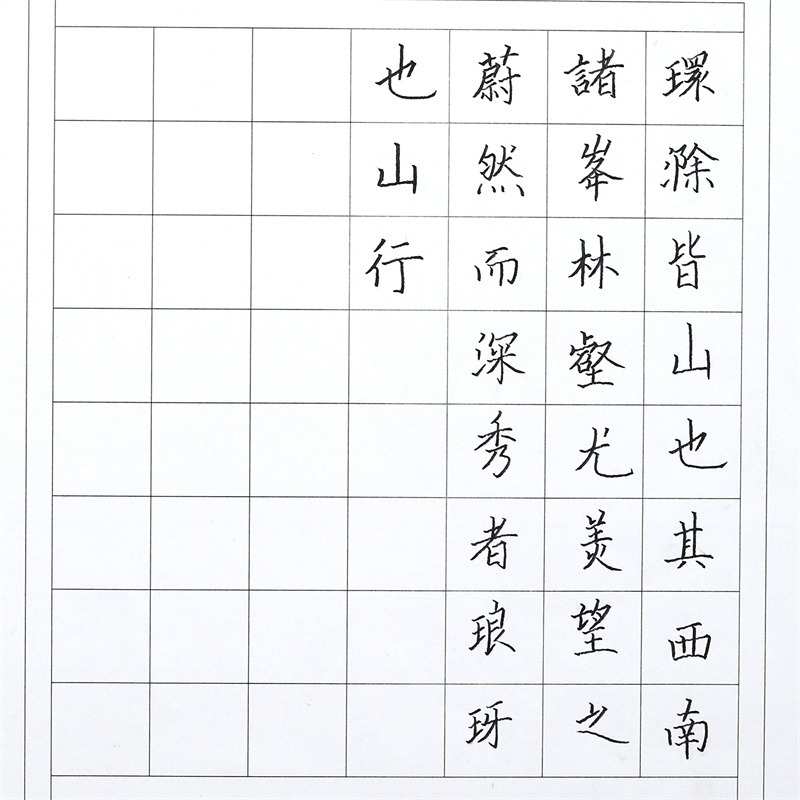 環滁皆山也其西南
諸峯林壑尤美望之
蔚然而深秀者琅玡
也山行